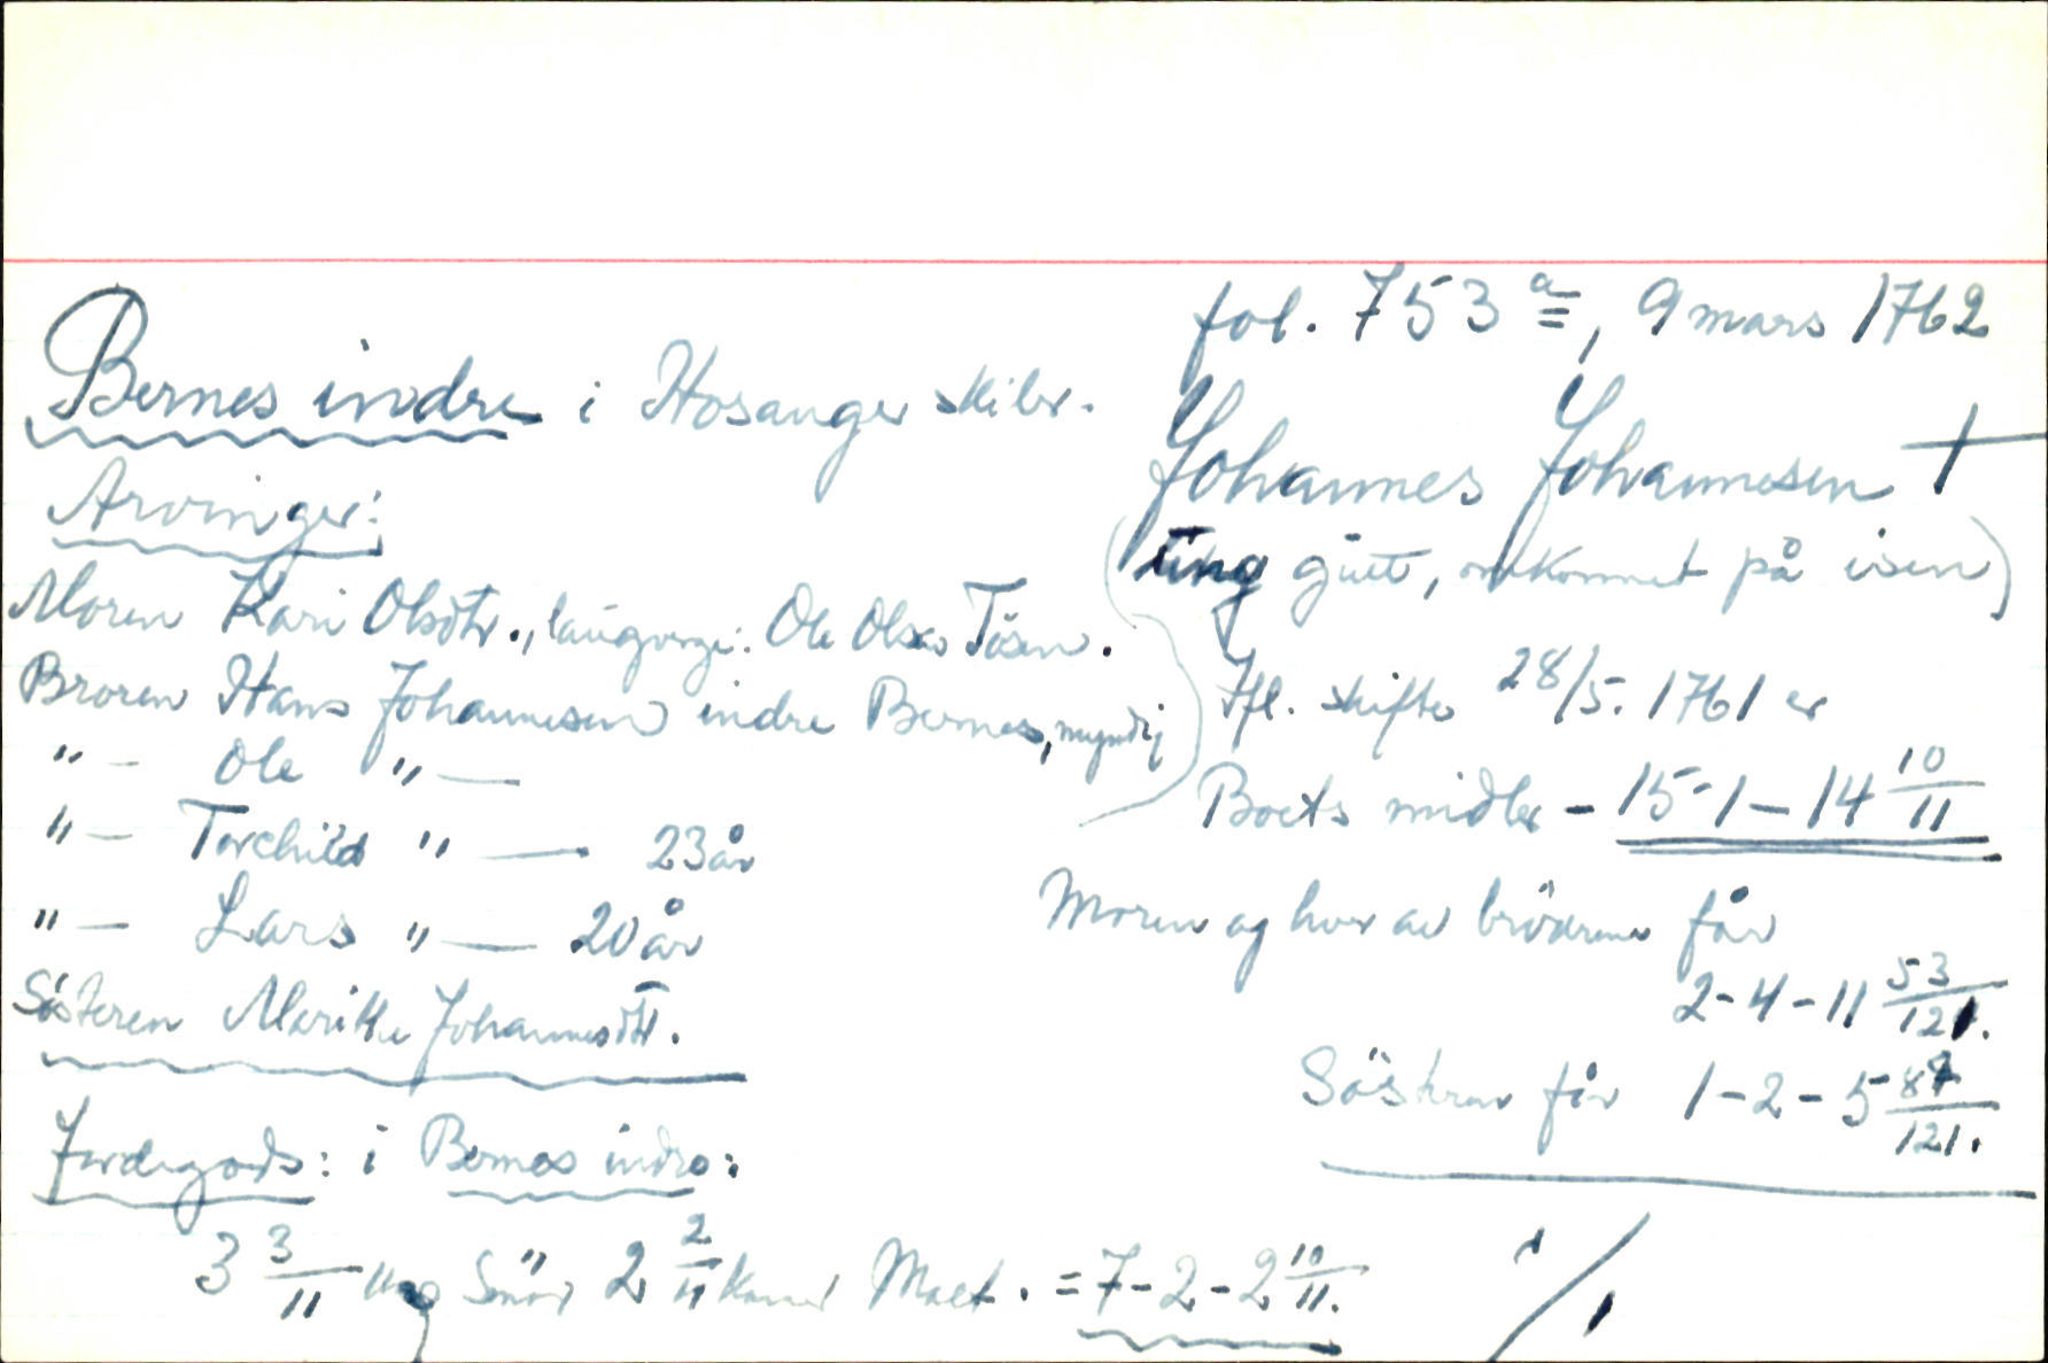 fol. 753 a, 9 mars 1762
Bernes indre i Hosanger skibr.
Johannes Johannesen †
(ung gutt, omkommet på isen)
Arvinger:
Moren Kari Olsdtr., laugverge: Ole Olsen Tösen.
Broren Hans Johannesen indre Bernes, myndig
" — Ole " —
" — Torchild " — 23 år
" — Lars " — 20 år
Søsteren Marithe Johannesdtr.
Ifl. skifte 28/5. 1761 er
Boets midler - 15-1-14 10/11
Moren og hver av brödrene får
2-4-11 53/121.
Söstren får 1-2-5 87/121.
Jordegods: i Bernes indre:
3 3/11 mrg Smör 2 2/11 kanner Malt. = 7-2-2 10/11.